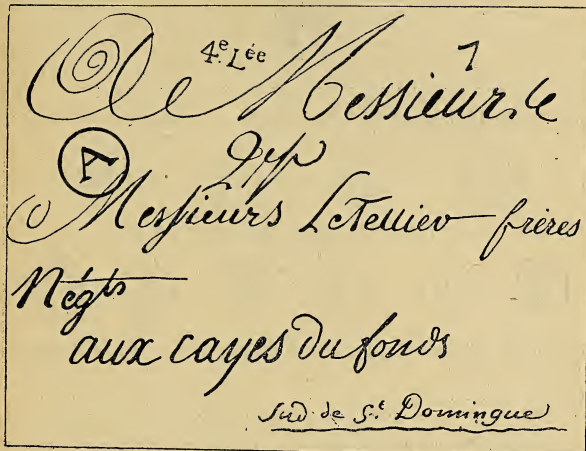 4e Lée
A Messieur, le
A
Messieurs LeTellier frères
Négts
aux cayes du fonds
Sud de St Domingue